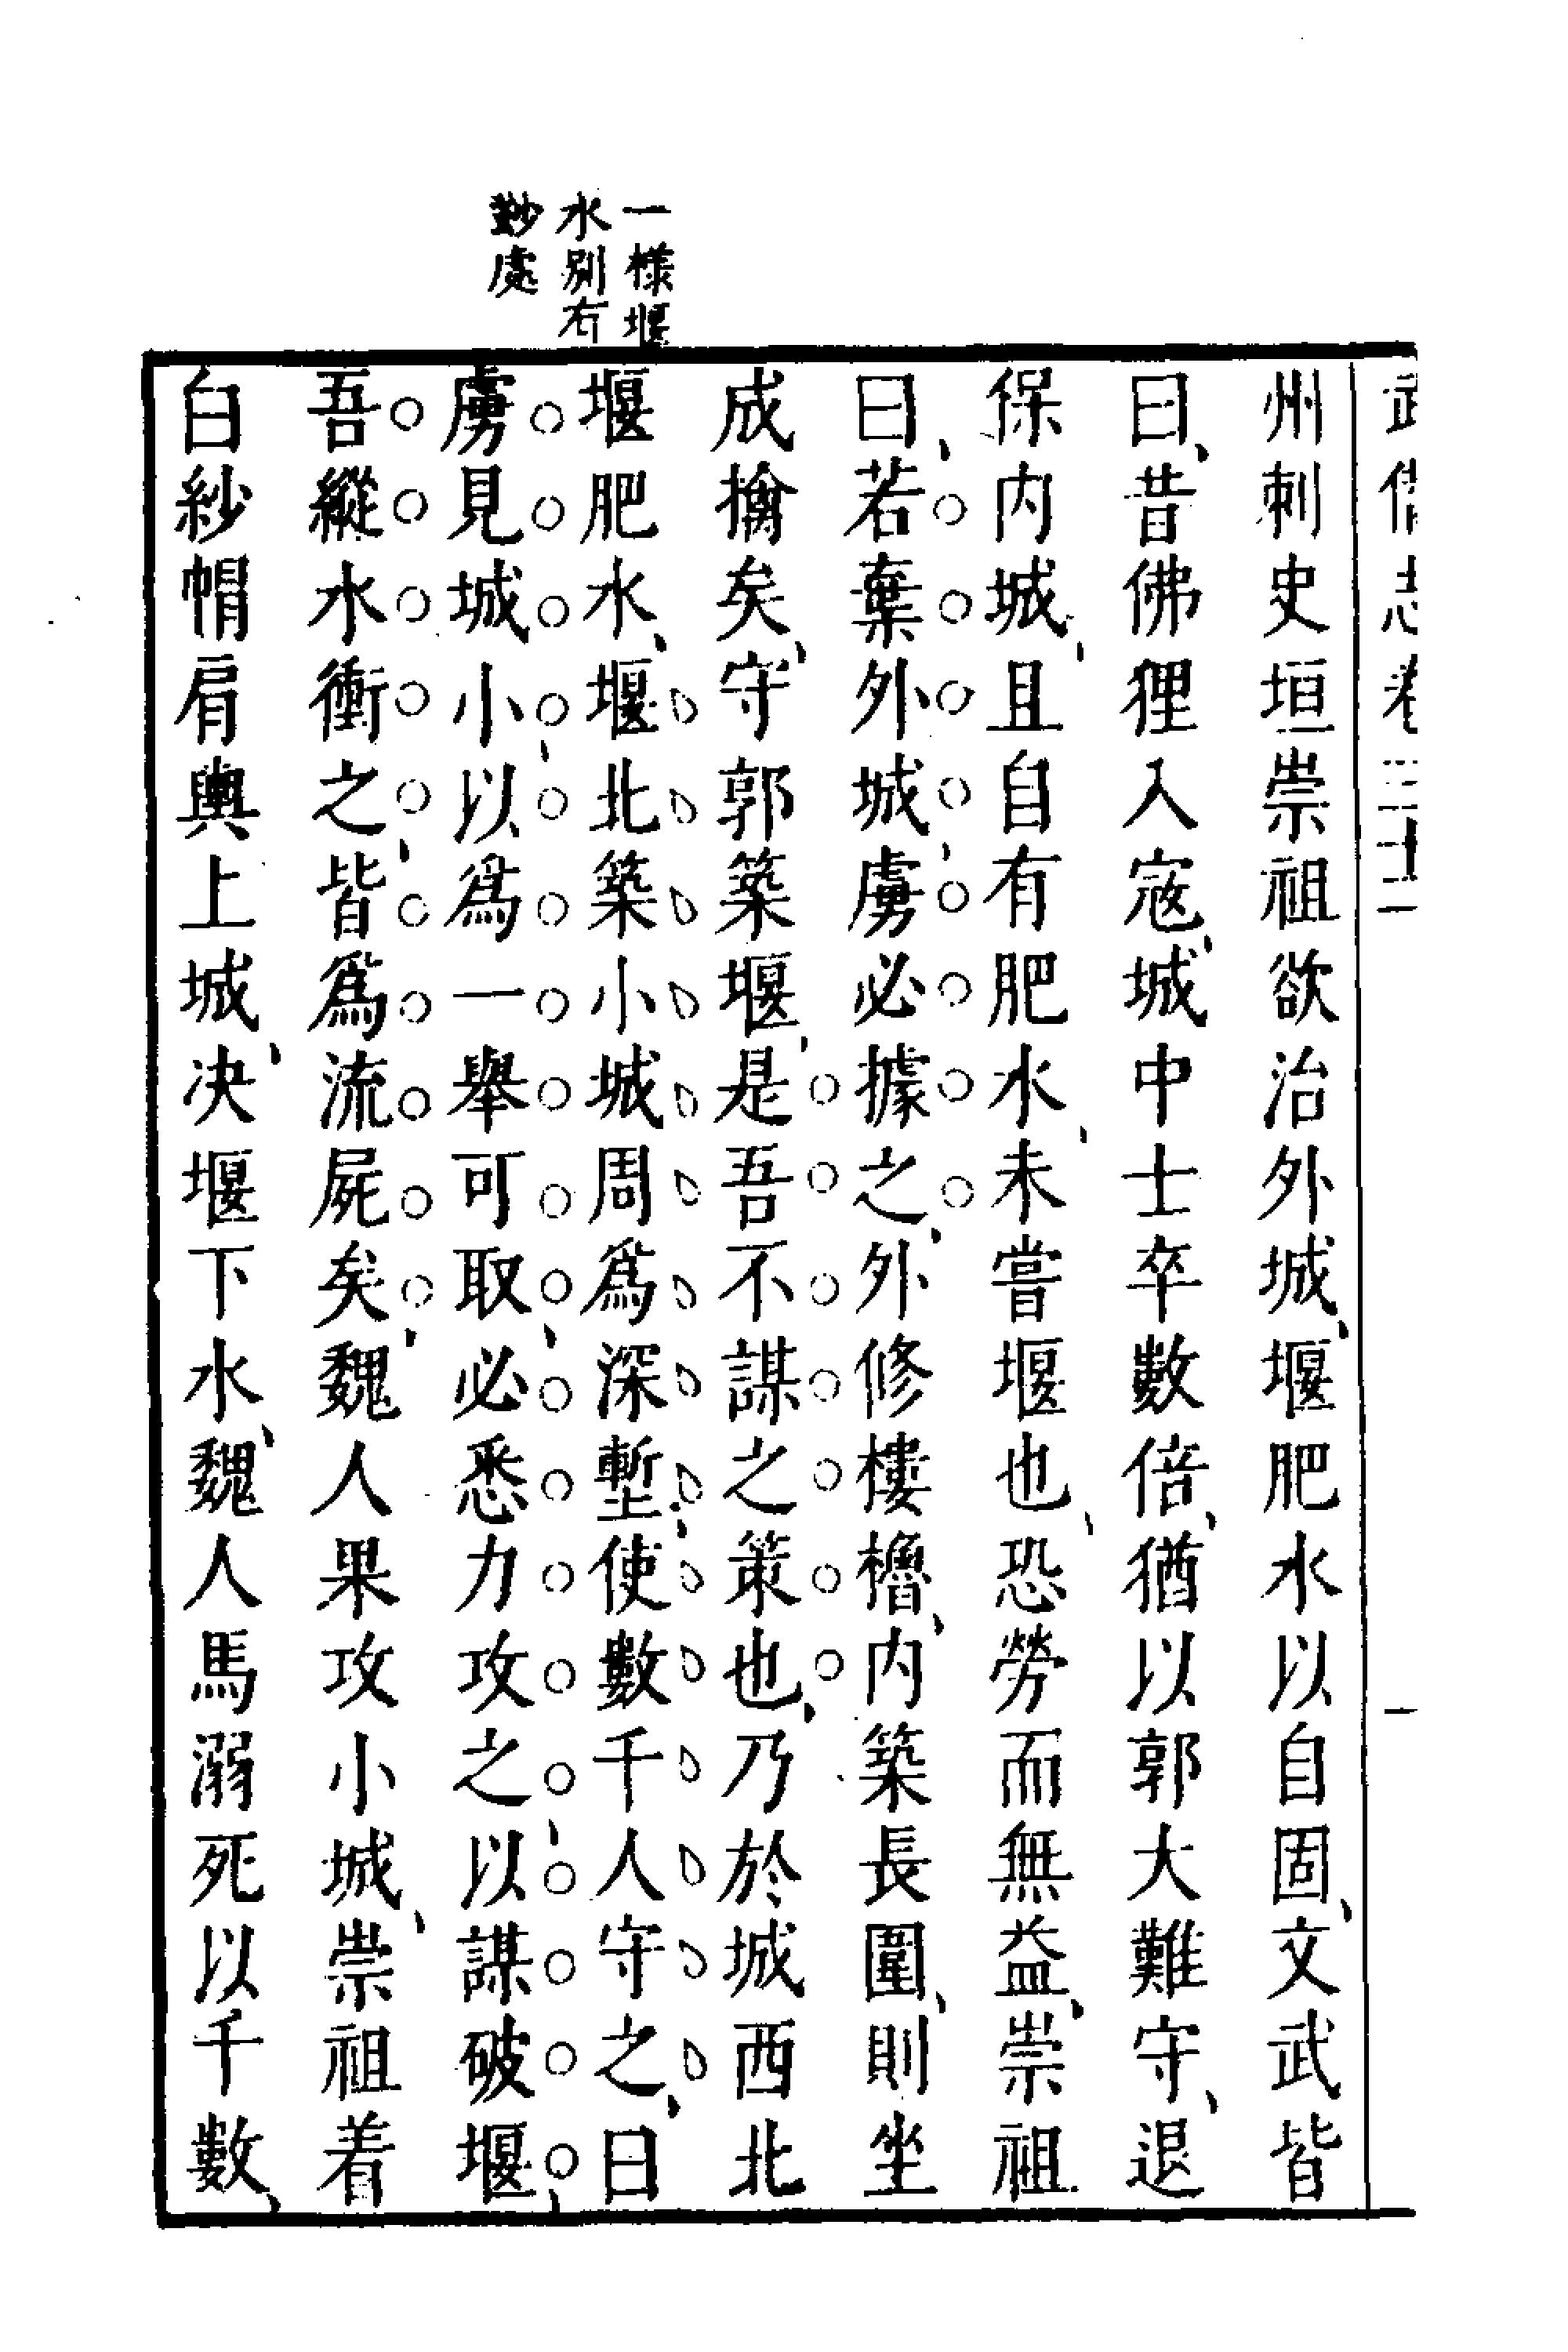 武備志卷三十二
一
州刺史垣崇祖欲治外城、堰肥水以自固、文武皆
曰、昔佛狸入寇、城中士卒數倍、猶以郭大難守、退
保内城、且自有肥水、未嘗堰也、恐勞而無益、崇祖
曰、若棄外城、虜必據之、外修樓櫓、内築長圍、則坐
成擒矣、守郭築堰、是吾不謀之策也、乃於城西北
堰肥水、堰北築小城周爲深塹、使數千人守之、曰
虜見城小、以爲一舉可取、必悉力攻之、以謀破堰、
吾縱水衝之、皆爲流屍矣、魏人果攻小城、崇祖着
白紗帽肩輿上城、决堰下水、魏人馬溺死以千數、
一樣堰
水别有
妙處